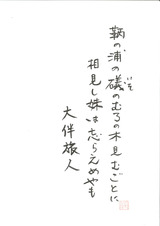 鞆の浦の磯のむろの木見むごとに
いそ
相見し妹は忘らえめやも
大伴旅人